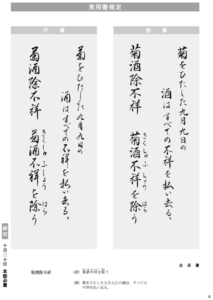 実用書規定
楷書
菊をひたした九月九日の
酒はすべての不祥を払い去る。
菊酒除不祥
菊酒不祥を除う
きくしゅふしょう はら
行書
菊をひたした九月九日の
酒はすべての不祥を払い去る。
菊酒除不祥
菊酒不祥を除う
きくしゅふしょう はら
菊酒除不祥
菊酒不祥を除う
菊をひたした九月九日の酒は、すべての
不祥を払い去る。